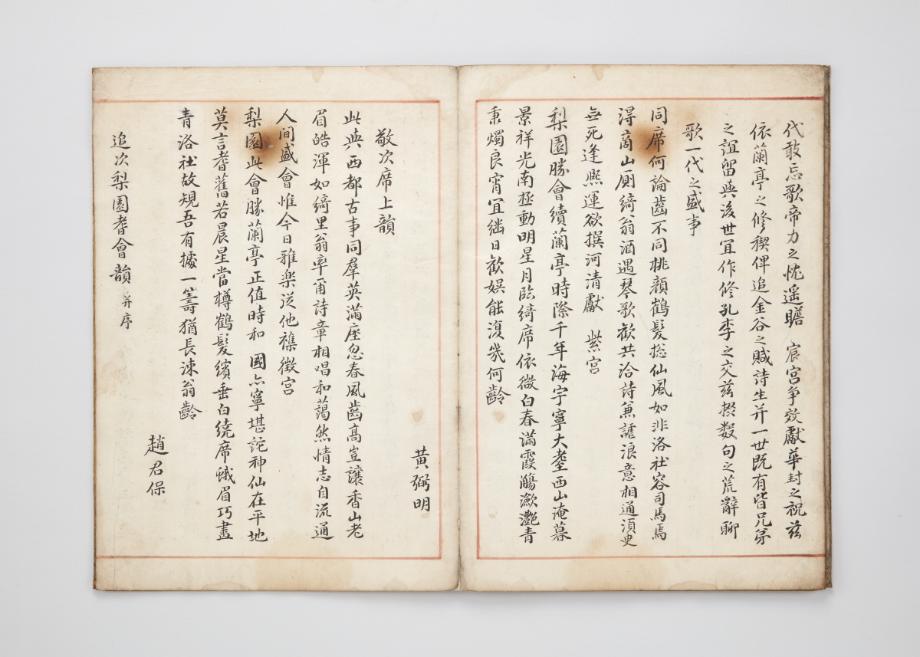 代敢忘歌帝力之忱遥瞻 宸宮争效獻華封之祝玆
依蘭亭之修稧俾追金谷之賦詩生并一世既有皆兄弟
之誼留與後世宜作修孔李之交玆掇数句之荒辭聊
歌一代之盛事
同席何論齒不同桃顔鶴髮揔仙風如非洛社容司馬焉
得商山厠綺翁酒遇琴歌歡共洽詩兼謔浪意相通須臾
無死逢熙運欲撰河清獻 紫宮
梨園勝會續蘭亭時際千年海宇寧大耋西山淹暮
景祥光南極動明星月臨綺席依微白春滿霞觴瀲灔青
秉燭良宵宜繼日歡娛能復幾何齡
黃弼明
敬次席上韻
此與西都古事同羣英滿座忽春風齒高豈讓香山老
眉皓渾如綺里翁率爾詩章相唱和藹然情志自流通
人间盛會惟今日雅樂從他襍徵宮
梨園此會勝蘭亭正值時和 國亦寧堪詫神仙在平地
莫言耆舊若晨星當樽鶴髮繽垂白繞席蛾眉巧畫
青洛社故規吾有據一籌猶長涑翁齡
趙君保
追次梨園耆會韻 并序